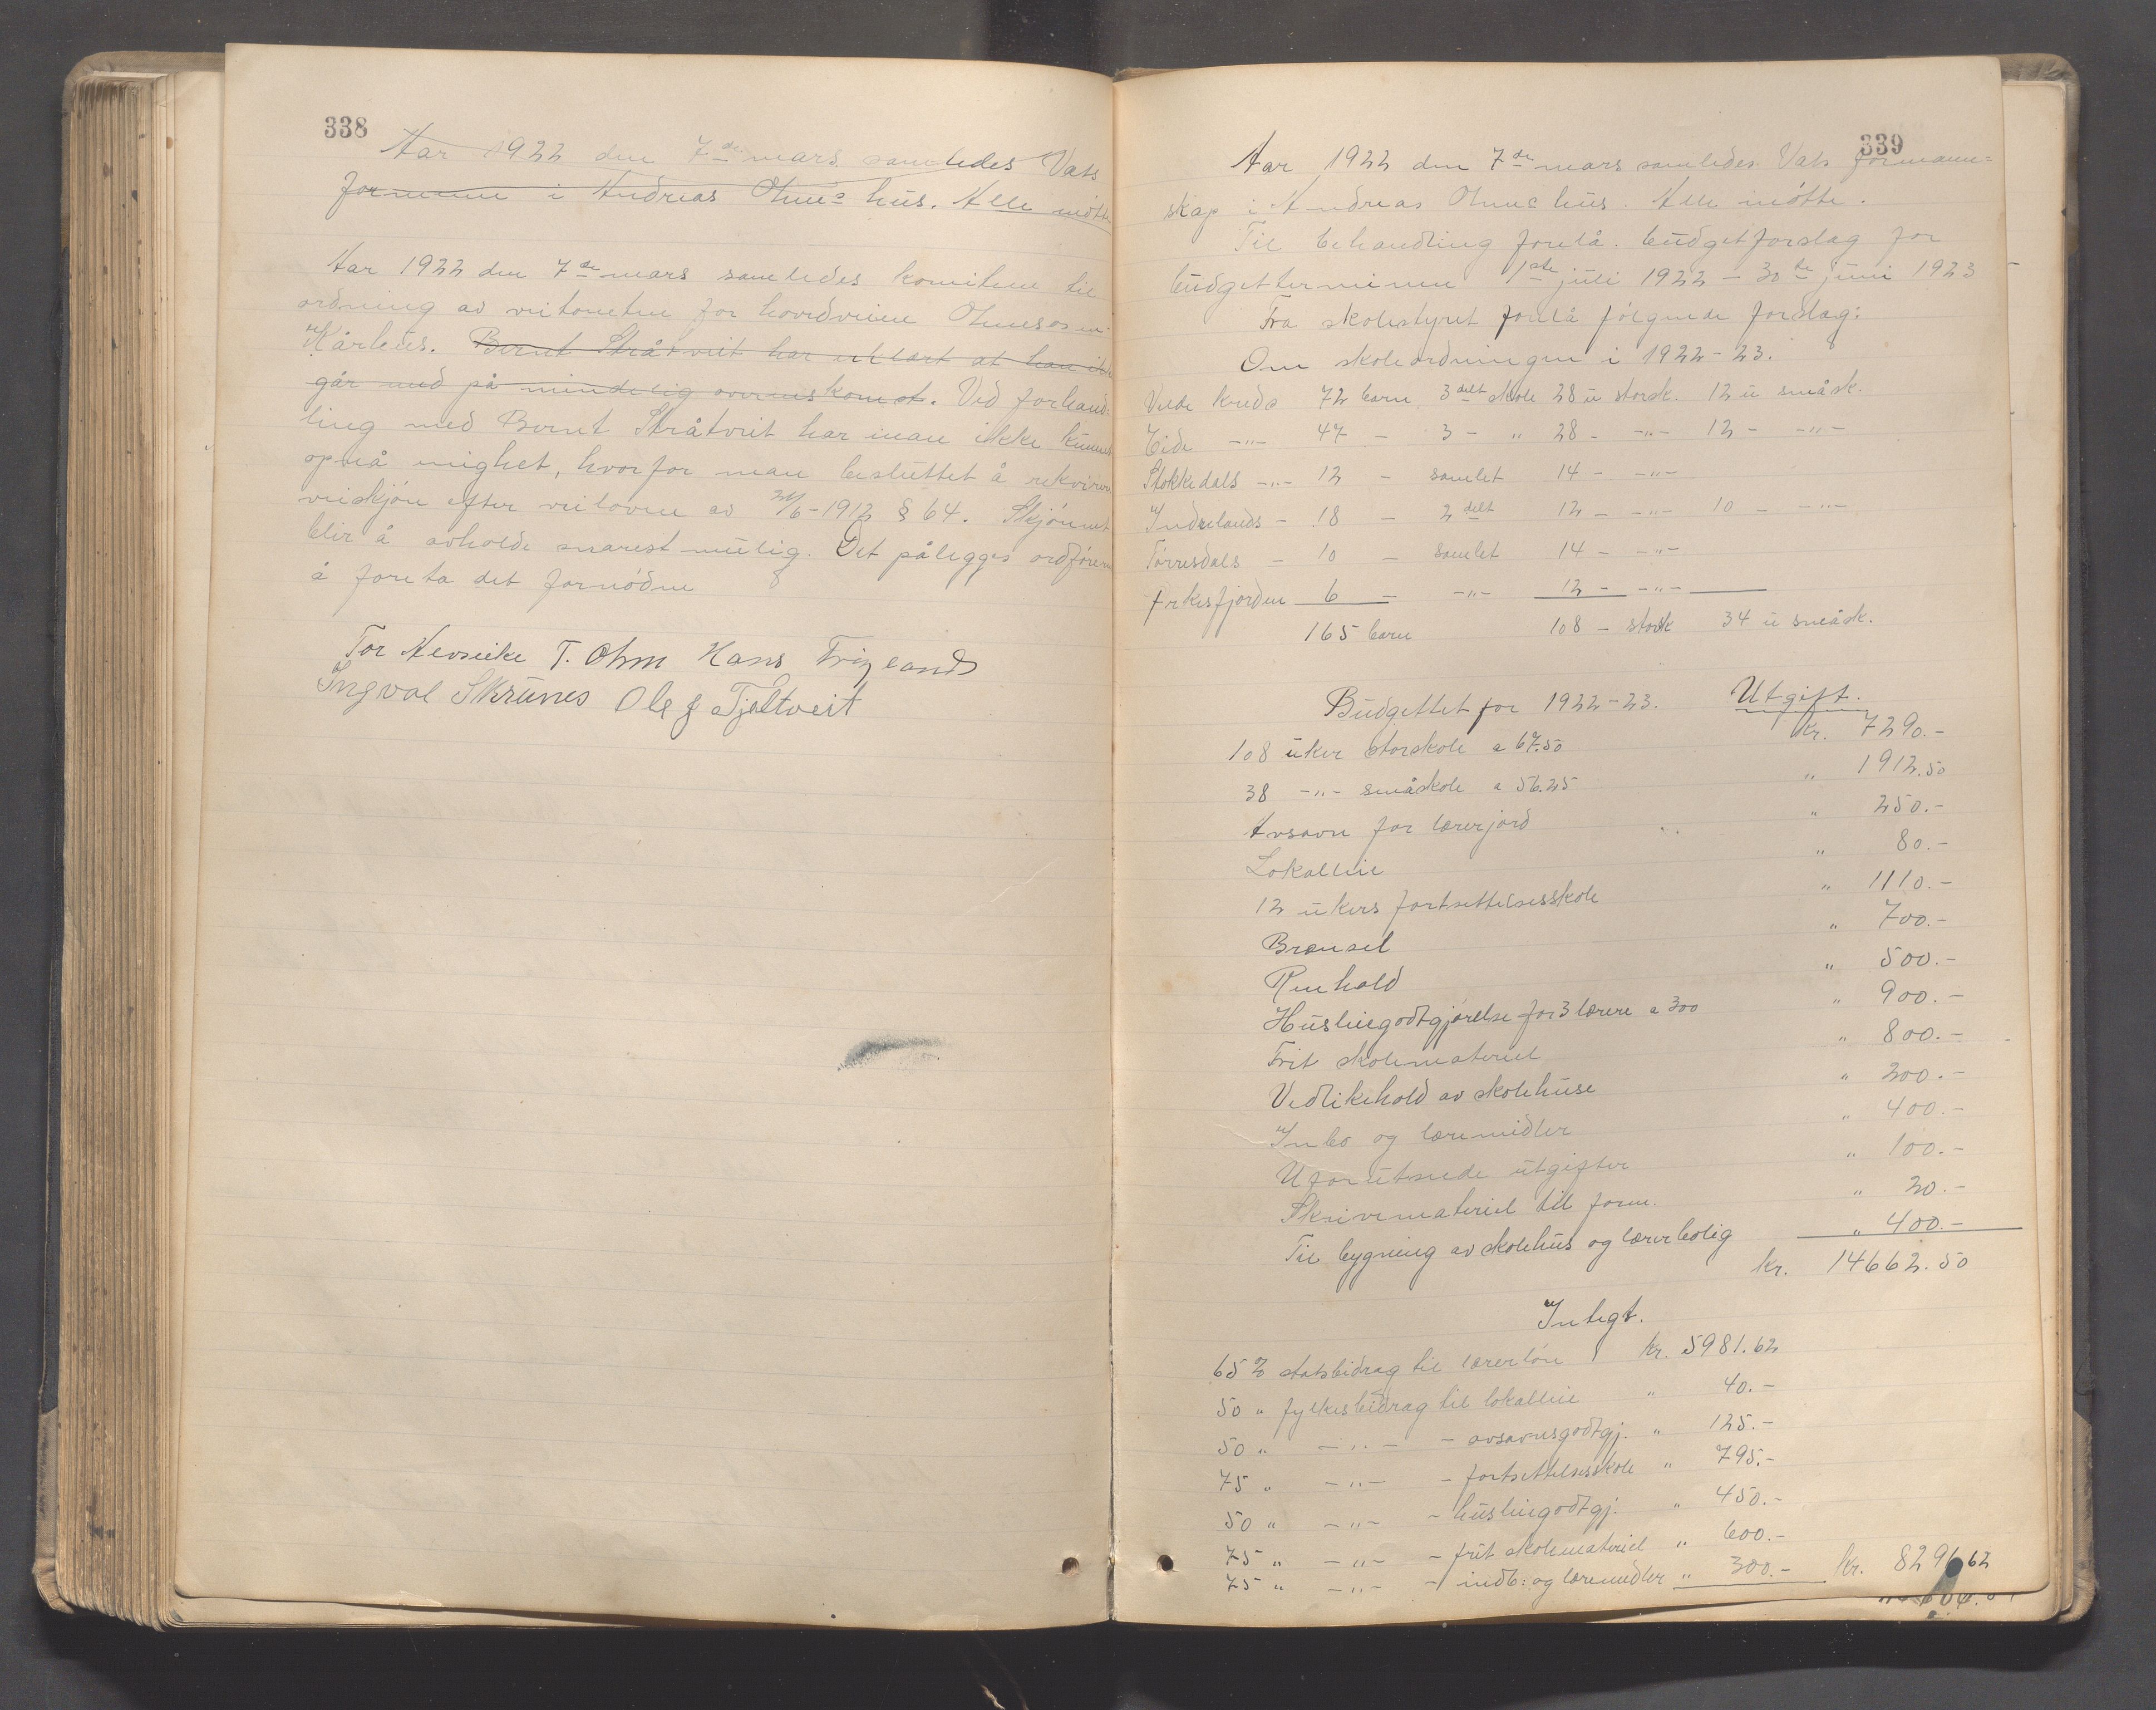 338
Aar 1922 den 7de mars samledes Vats
formenn i Andreas Ohmes hus. Alle møtte
Aar 1922 den 7de mars samledes komiteen til
ordning av veitomten for hovedveien
Kårhus. Bernt Stråtveit har erklært at han ikke
går med på mindelig overenskomst. Ved forhand-
ling med Bernt Stråtveit har man ikke kunnet
opnå enighet, hvorfor man besluttet å rekvirere
veiskjøn efter veiloven av 21/6-1912 § 64. Skjønnet
blir å avholde snarest mulig. Det pålegges ordføreren
å foreta det fornødne
Tor T. Ohm Hans
Ingval Skrunes Ole J Tjeltveit
339
Aar 1922 den 7de mars samledes Vats formann=
skap i Andreas Ohmes hus. Alle møtte.
Til behandling forelå. budgetforslag for
budgetterminen 1ste juli 1922 - 30te juni 1923
Fra skolestyret forelå følgende forslag:
Om skoleordningen i 1922-23.
Velde kreds 72 barn 3delt skole 28 u storsk. 12 u småsk.
Eide -"- 47 - 3 - " 28 - -"- 12 - -"-
Stokkedals -"- 12 - samlet 14 - -"-
Indrelands - 18 - 2delt 12 - -"- 10 - -"-
Tørresdals - 10 - samlet 14 - -"-
Ørkesfjorden 6 - -"- 12 - -"-
165 barn 108 - storsk 34 u småsk.
Budgettet for 1922-23. Utgift.
108 uker storskole a 67.50 kr. 7290.-
38 -"- småskole a 56.25 " 1912.50
Avsavn for lærerjord " 250.-
Lokalleie " 80.-
12 ukers fortsettelsesskole " 1110.-
Brænsel " 700.-
Renhold " 500.-
Husleiegodtgjørelse for 3 lærere a 300 " 900.-
Frit skolemateriel " 800.-
Vedlikehold av skolehuse " 200.-
Inbo og læremidler " 400.-
Uforutsede utgifter " 100.-
Skrivemateriel til form. " 20.-
Til bygning av skolehus og lærerbolig " 400.-
kr. 14662.50
Integt.
65 % statsbidrag til lærerløn kr. 5981.62
50 " fylkesbidrag til lokalleie " 40.-
50 " -"- - avsavnsgodtgj. " 125.-
75 " -"- - fortsettelsesskole " 795.-
50 " -"- - husleiegodtgj. " 450.-
75 " -"- - frit skolemateriel " 600.-
75 " -"- - indb: og læremidler " 300.- kr. 8291.62